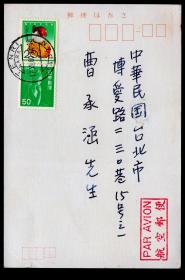 郵便はがき
50
中華民国台北市
博愛路二三〇巷15号之一
曹承涵先生
PAR AVION
航空郵便